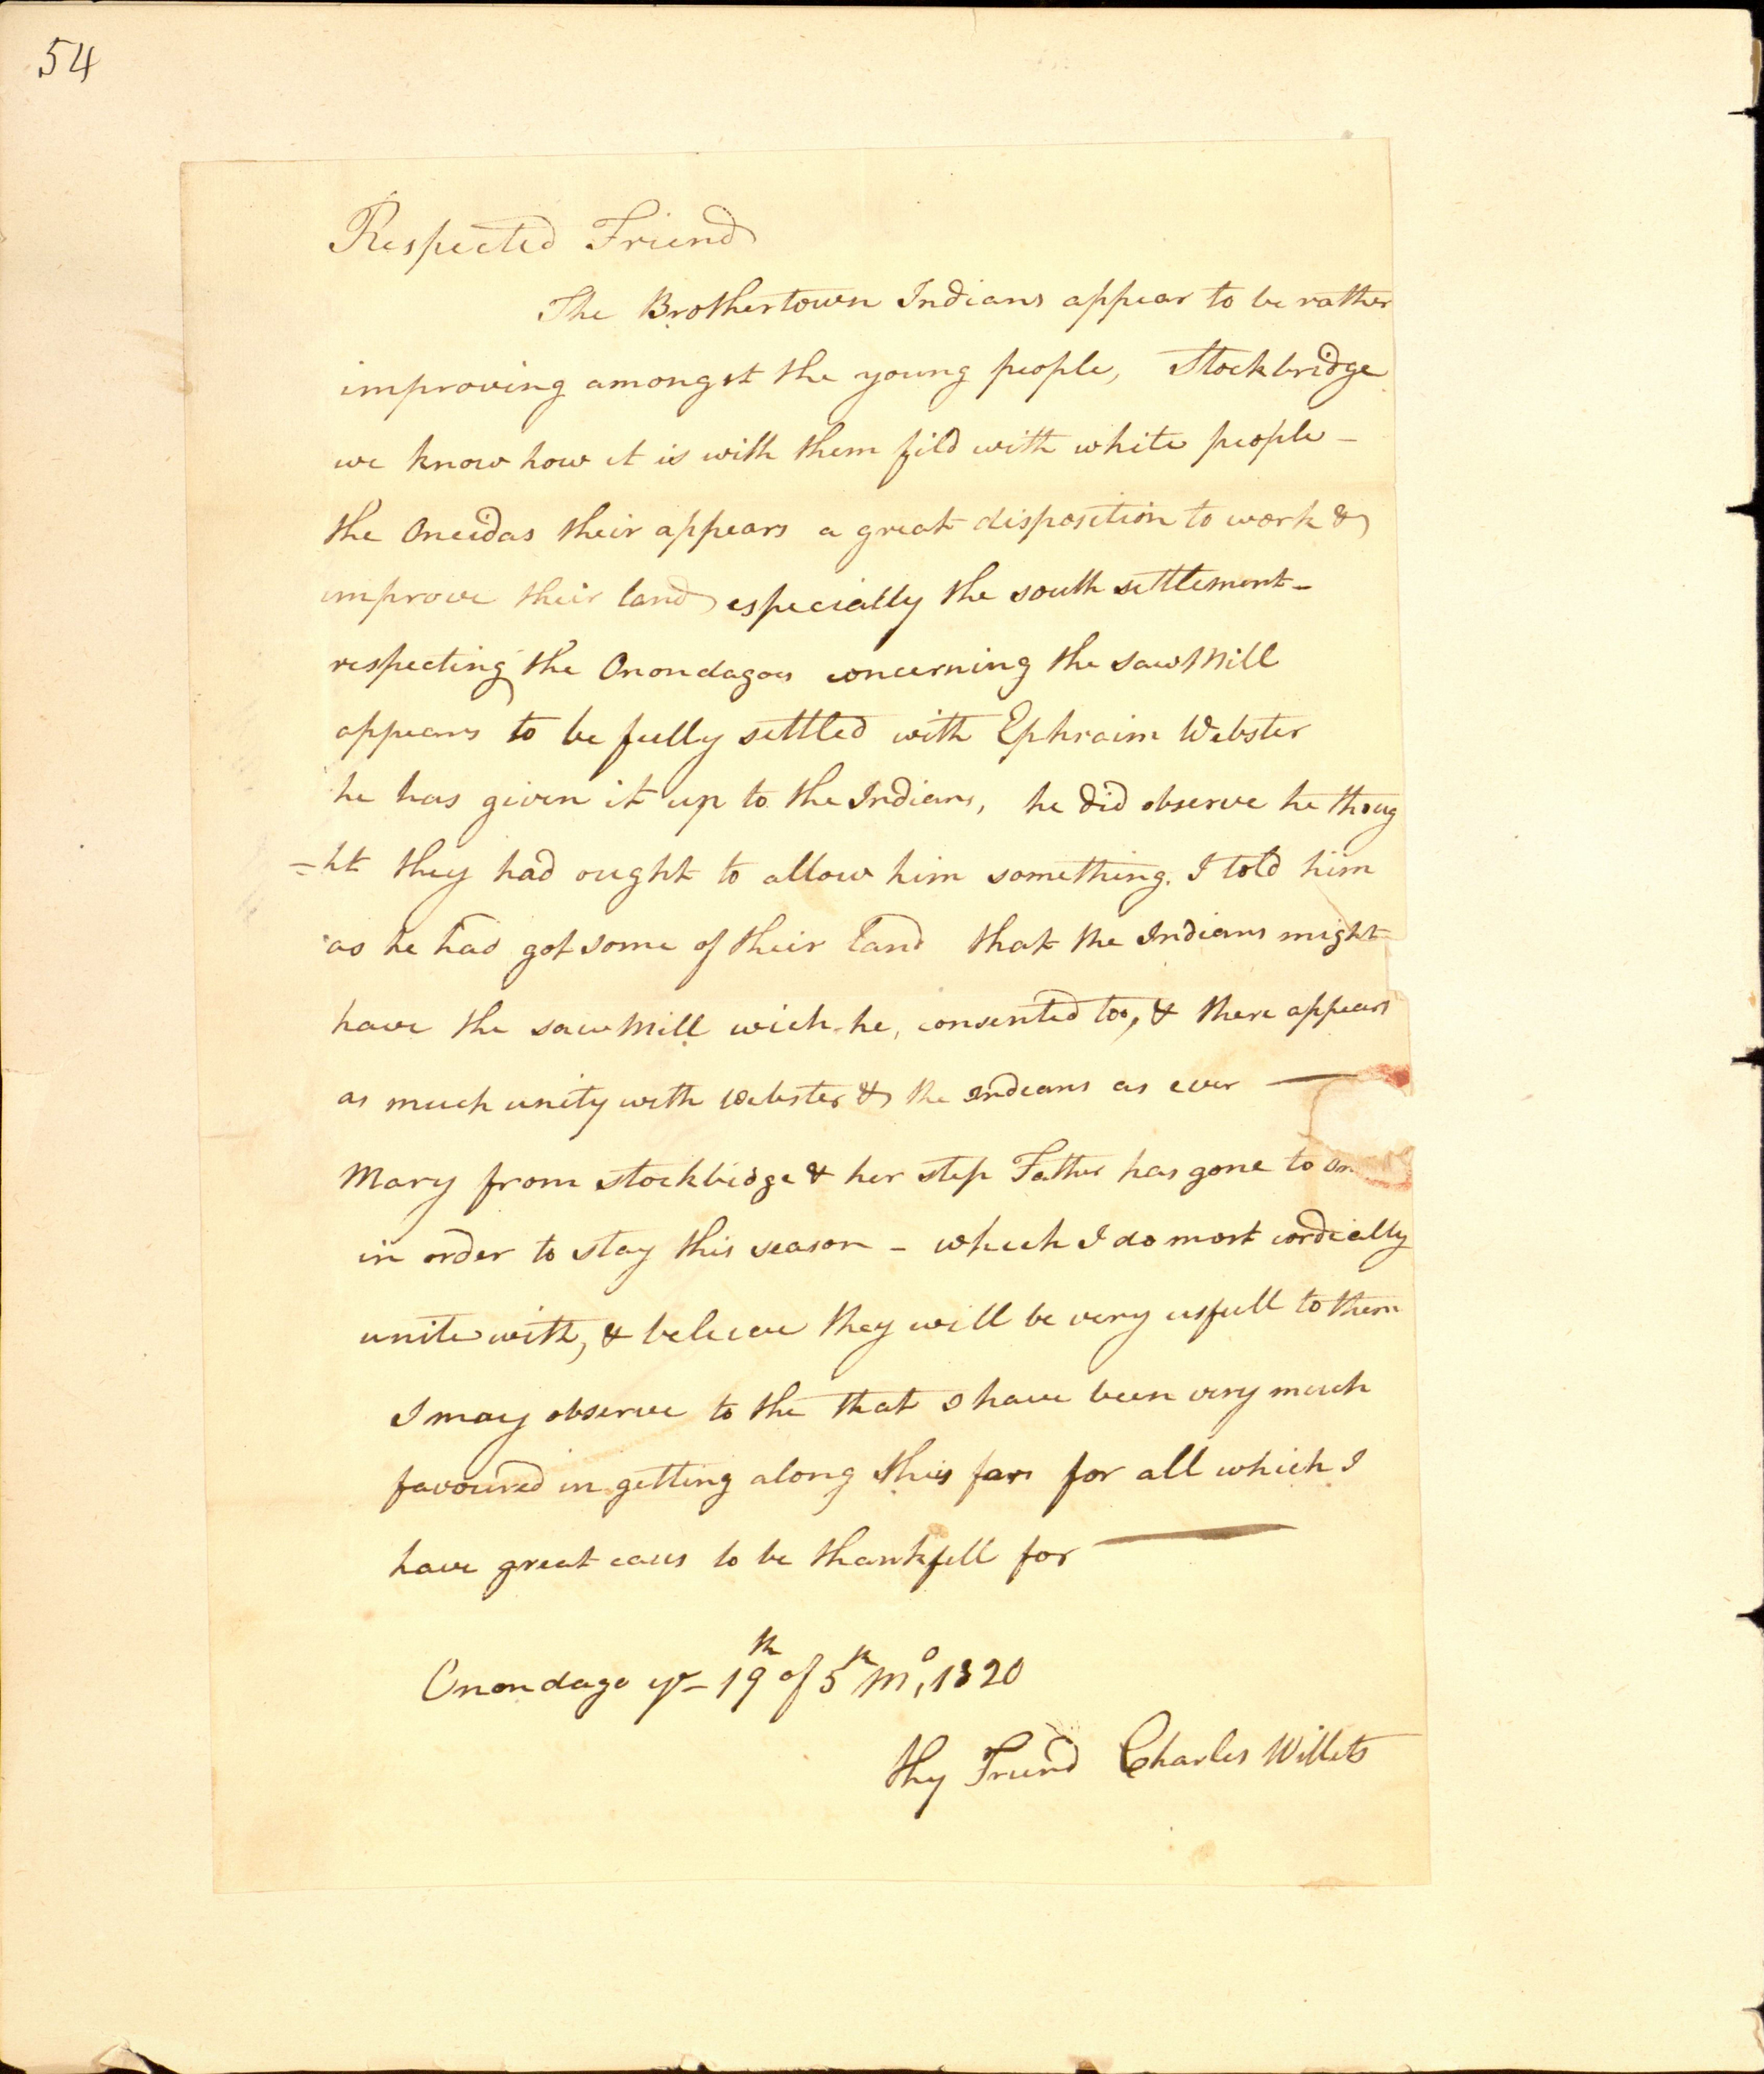 54
Respected Friend
The Brothertown Indians appear to be rather
improving amongst the young people, Stockbridge
we know how it is with them fild with white people -
the Oneidas their appears a great disposition to work &
improve their land especially the south settlement -
respecting the Onondagas concerning the saw Mill
appears to be fully settled with Ephraim Webster
he has given it up to the Indians, he did observe he thoug
=ht they had ought to allow him something. I told him
as he had got some of their land that the Indians might
have the saw Mill wich he, consented too, & there appears
as much unity with Webster & the Indians as ever —
Mary from stockbidge & her step Father has gone to on
in order to stay this season - which I do most cordially
unite with, & beleeve they will be very usfull to them
I may observe to the that I have been very much
favoured in getting along this far for all which I
have great caus to be thankfull for —
Onondago ye 19th of 5th Mo, 1820
thy Friend Charles Willets